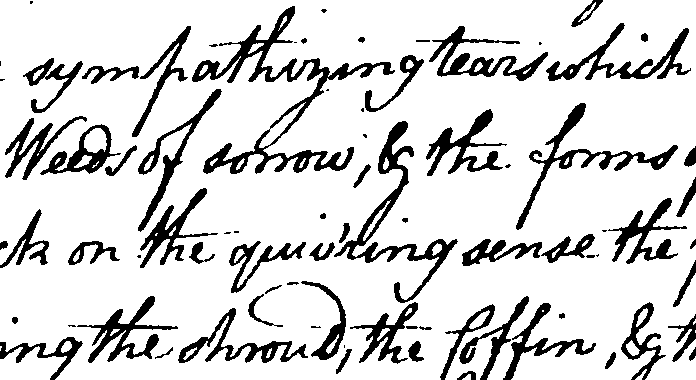 sympathizing tears which
Weeds of sorrow, & the forms
ck on the quiv'ring sense the
ing the shroud, the Coffin, & th